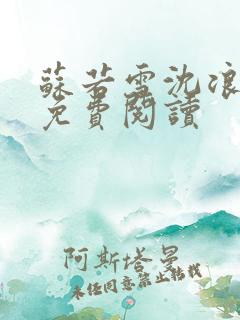 蘇若雪沈浪
免費閱讀
阿斯塔曼
未经同意禁止转载